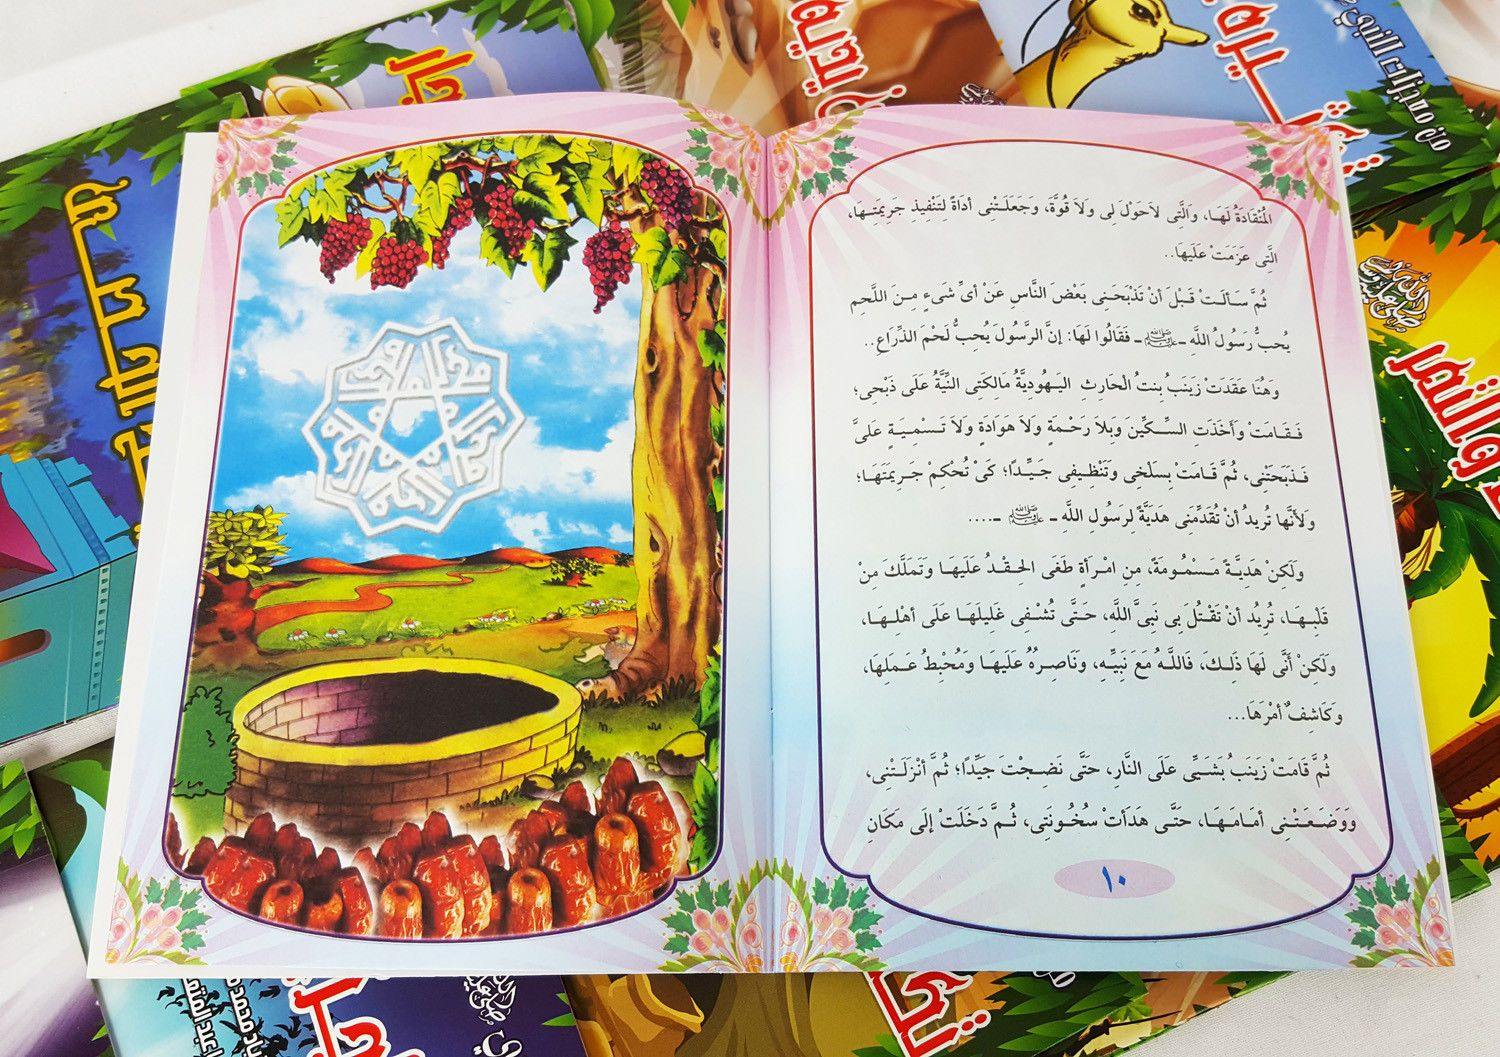 المُنْقَادَةُ لَهَا، وَالَّتِى لاَحَوْلَ لِى وَلاَ قُوَّةَ، وَجَعَلَتْنِى أدَاةً لِتَنْفِيذِ جَرِيمَتِهَا،
الَّتِى عَزَمَتْ عَلَيهَا..
ثُمَّ سَألَتْ قَبْلَ أنْ تَذْبَحَنِى بَعْضَ النَّاسِ عَنْ أىِّ شَىءٍ مِنَ اللَّحمِ
يُحبُّ رَسُولُ اللَّهِ ـ ﷺ ـ فَقَالُوا لَهَا: إنَّ الرَّسُولَ يُحِبُّ لَحْمَ الذِّرَاعِ..
وَهُنَا عَقَدَتْ زَيْنَبُ بِنتُ الْحَارثِ اليَهُودِيَّةُ مَالِكَتِى النِّيَّةَ عَلَى ذَبْحِى؛
فَقَامَتْ وَأخَذَتِ السِّكِّينَ وَبِلاَ رَحْمَةٍ وَلاَ هَوَادَةٍ وَلاَ تَسْمِيَةٍ عَلَىَّ
فَذَبَحَتْنِى، ثُمَّ قَامَتْ بِسَلْخِى وَتَنْظِيفِى جَيِّدًا؛ كَىْ تُحْكِمْ جَرِيمَتَهَا؛
وَلأَنَّهَا تُرِيدُ أنْ تُقَدِّمَنِى هَدِيَّةً لِرَسُولِ اللَّهِ ـ ﷺ ـ....
وَلَكِنْ هَدِيَّةً مَسْمُومَةً، مِنِ امْرَأةٍ طَغَى الحِقْدُ عَلَيهَا وَتَمَلَّكَ مِنْ
قَلْبِهَا، تُرِيدُ أنْ تَقْتُلَ بِى نَبِىَّ اللَّهِ، حَتَّى تُشْفِى غَلِيلَهَا عَلَى أهْلِهَا،
وَلَكِنْ أنَّى لَهَا ذَلِكَ، فَاللَّهُ مَعَ نَبِيِّهِ، وَنَاصِرُهُ عَلَيهَا وَمُحْبِطُ عَمَلِهَا،
وَكَاشِفٌ أمْرَهَا...
ثُمَّ قَامَتْ زَيْنَبُ بِشَيِّى عَلَى النَّارِ، حَتَّى نَضِجْتَ جَيِّدًا؛ ثُمَّ أنْزَلَتْنِى،
وَوَضَعَتْنِى أمَامَهَا، حَتَّى هَدَأتْ سُخُونَتِى، ثُمَّ دَخَلَتْ إلَى مكَانِ
١٠
من معجزات النبي
والنهر